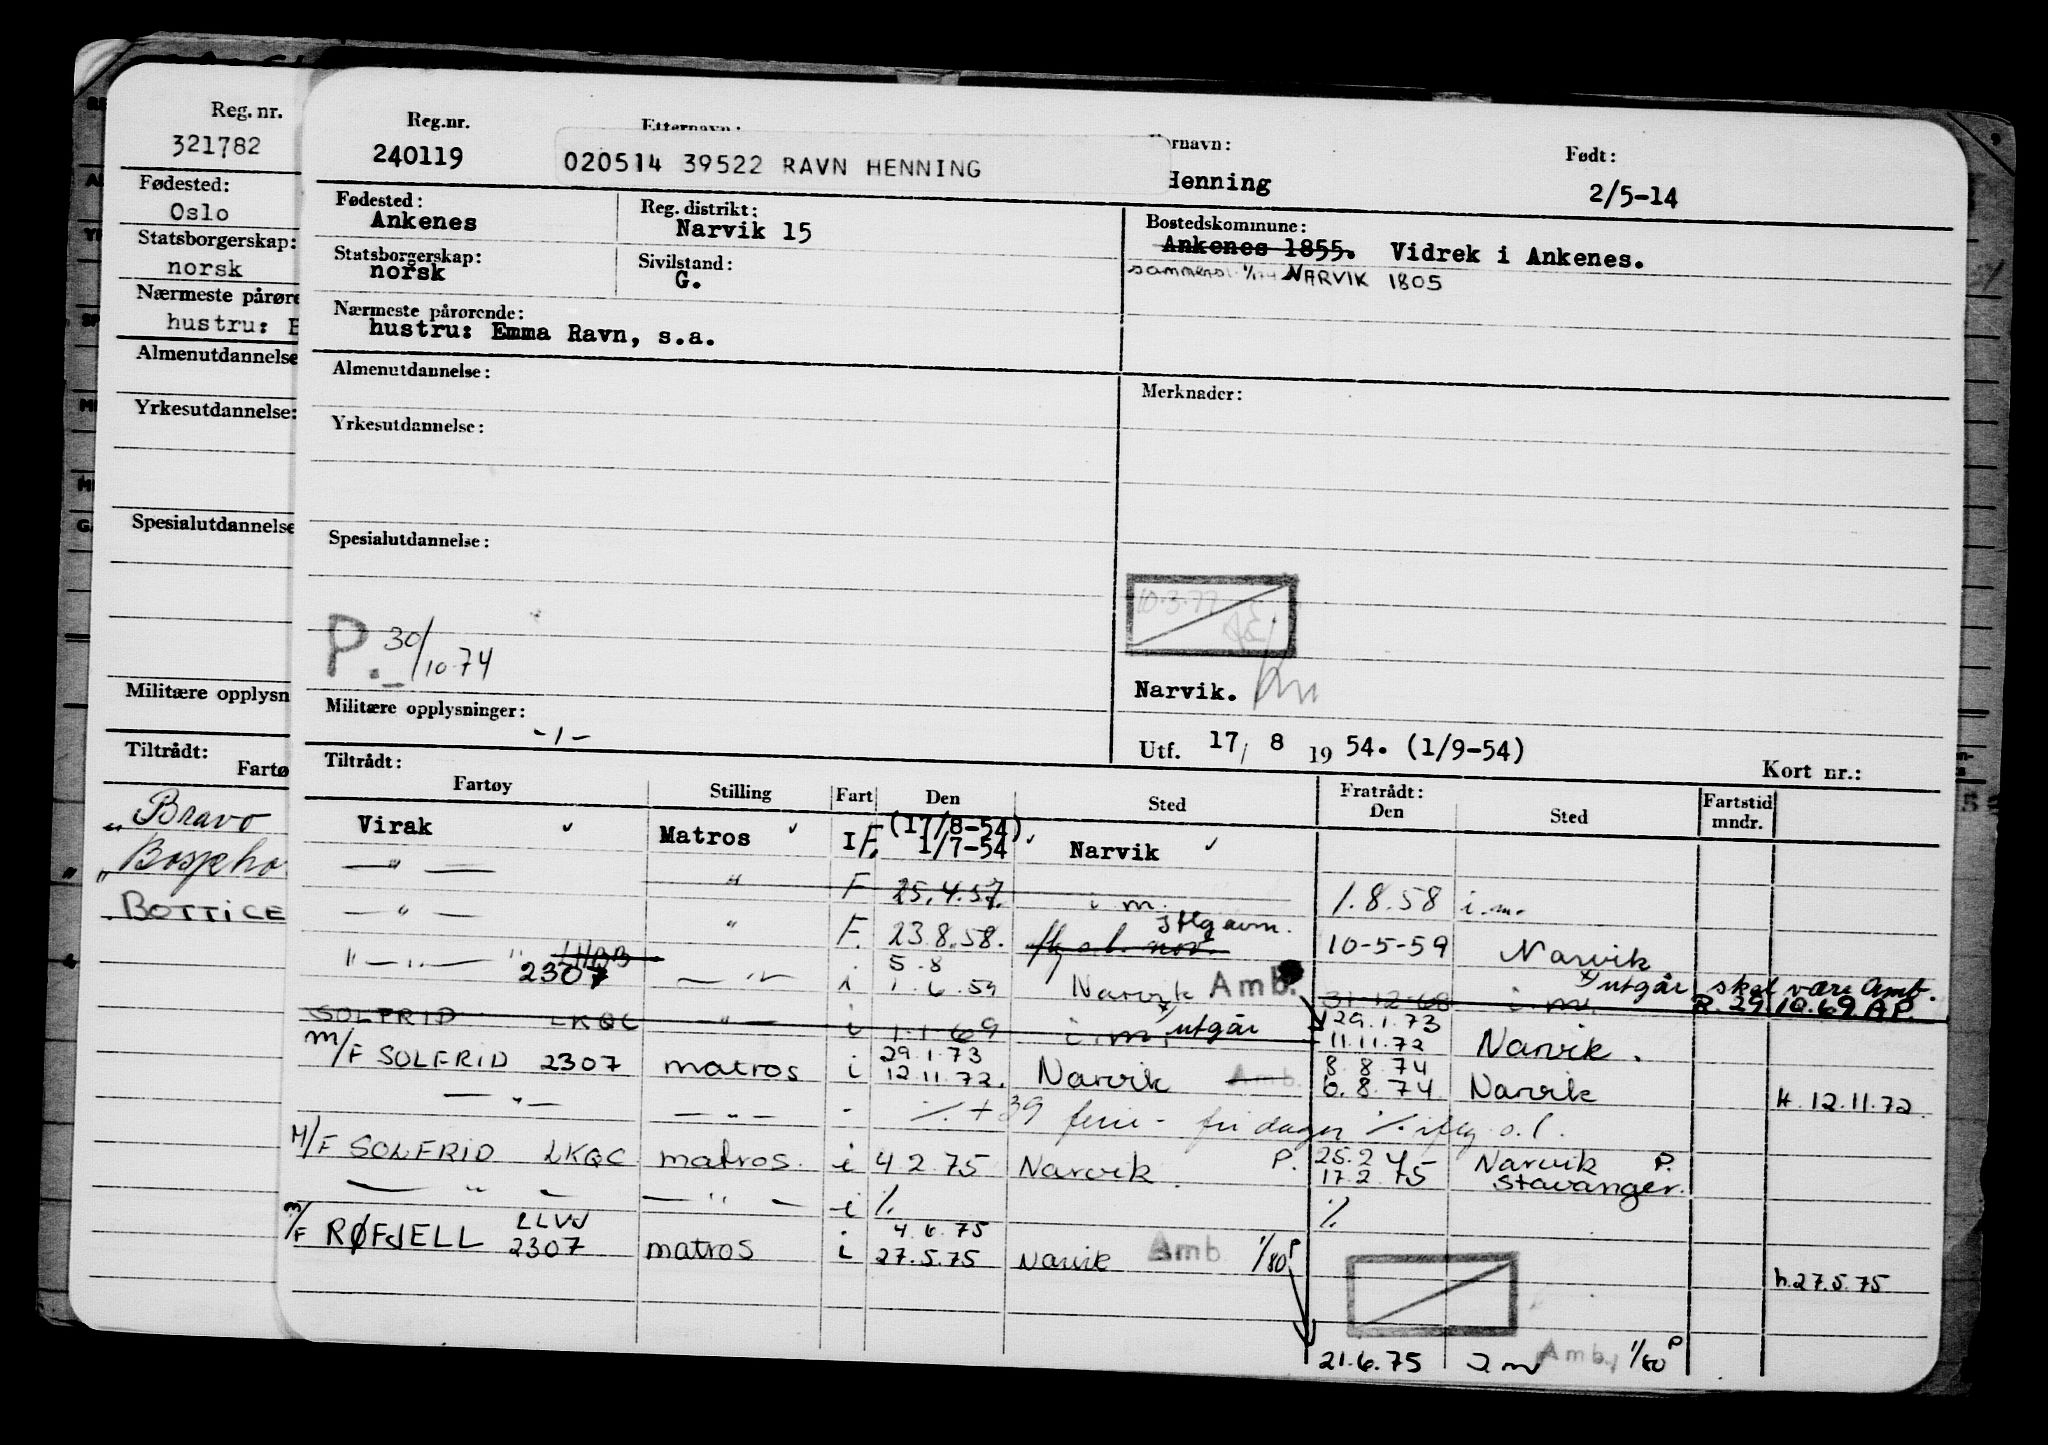 Reg. nr.
321782
Fødested:
Oslo
Statsborgerskap:
norsk
Nærmeste pårøre
hustru: E
Almenutdannelse
Yrkesutdannelse:
Spesialutdannelse
Militære opplysn
Tiltrådt:
Fartø
" Bravo
" Bospho
BOTTICE
Reg.nr. Etternavn: ornavn: Født:
240119 020514 39522 RAVN HENNING Henning 2/5-14
Fødested: Reg. distrikt: Bostedskommune:
Ankenes Narvik 15 Ankenes 1855. Vidrek i Ankenes.
Statsborgerskap: Sivilstand: NARVIK 1805
norsk G.
Nærmeste pårørende:
hustru: Emma Ravn, s.a.
Almenutdannelse: Merknader:
Yrkesutdannelse:
Spesialutdannelse:
10.3.77
P. 30/10-74
Narvik.
Militære opplysninger:
-/-
Utf. 17/ 8 1954. (1/9-54)
Tiltrådt: Kort nr.:
Fartøy Stilling Fart Den Sted Fratrådt: Den Sted Fartstid mndr.
(17/8-54)
Virak Matros I F. 1/7-54 Narvik
—"— " F 25.4.57. i m. 1.8.58 i.m.
—"— " F. 23.8.58. 10-5-59 Narvik
"—"— " LHBB 5.8
2307 —"— i 1.6.59 Narvik Amb. 31.12.68 i m. utgår skal være Amb.
R. 29.10.69 A.P.
SOLFRID LKQC "— i 1.1.69 i.m. utgår 29.1.73
11.11.72 Narvik.
29.1.73 8.8.74
m/F SOLFRID 2307 matros i 12.11.72. Narvik Amb. 6.8.74 Narvik H. 12.11.72.
—"— —"— - % + 39 ferie- fridager
M/F SOLFRID LKQC matros. i 4 2.75 Narvik. P. 25.2 Narvik P.
17.2.75 Stavanger.
—"— —"— i % %
LLVJ 4.6.75
m/F RØFJELL 2307 matros i 27.5.75 Narvik Amb. 1/80 P h.27.5.75
21.6.75 Amb. 1/80 P